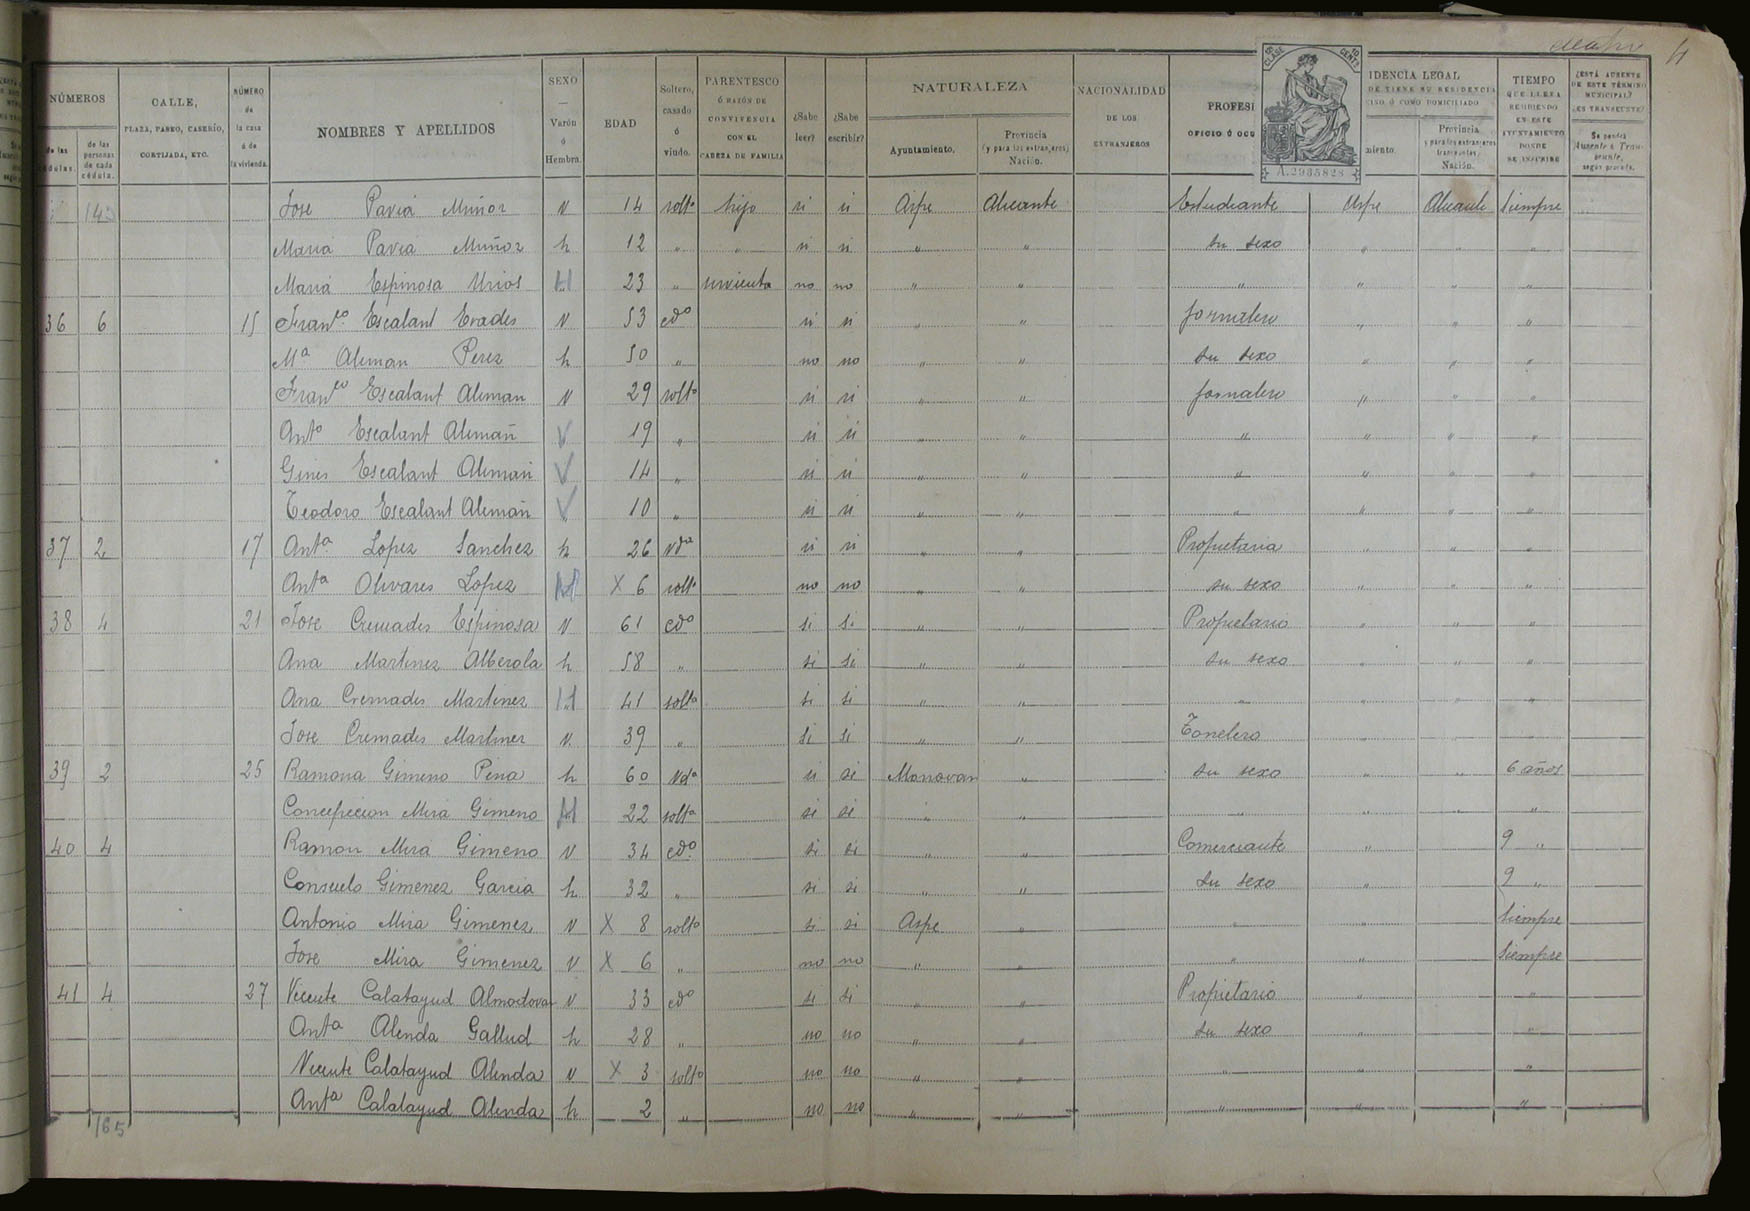 cuatro 4
NÚMEROS
de las cédulas. de las personas de cada cédula.
CALLE, PLAZA, PASEO, CASERÍO, CORTIJADA, ETC.
NÚMERO de la casa ó de la vivienda.
NOMBRES Y APELLIDOS
SEXO — Varón ó Hembra.
EDAD
Soltero, casado ó viudo.
PARENTESCO Ó RAZÓN DE CONVIVENCIA CON EL CABEZA DE FAMILIA
¿Sabe leer?
¿Sabe escribir?
NATURALEZA
Ayuntamiento. Provincia (y para los extranjeros) Nación.
NACIONALIDAD DE LOS EXTRANJEROS
PROFESI
OFICIO Ó OCU
5ª CLASE 10 CENTS
A.2985828
IDENCIA LEGAL
DE TIENE SU RESIDENCIA
CINO Ó COMO DOMICILIADO
miento. Provincia y para los extranjeros transeuntes, Nación.
TIEMPO QUE LLEVA RESIDIENDO EN ESTE AYUNTAMIENTO DONDE SE INSCRIBE
¿ESTÁ AUSENTE DE ESTE TÉRMINO MUNICIPAL? ¿ES TRANSEUNTE?
Se pondrá Ausente ó Transeunte, según proceda.
143 Jose Pavia Muñoz v 14 solto hijo si si Aspe Alicante Estudiante Aspe Alicante Siempre
Maria Pavia Muñoz h 12 " " si si " " Su sexo " " "
Maria Espinosa Urios H 23 " sirvienta no no " " " " " "
36 6 15 Franco. Escalant Erades v 53 cdo si si " " Jornalero " " "
Ma Aleman Perez h 50 " no no " " Su sexo " " "
Franco Escalant Aleman v 29 solto si si " " Jornalero " " "
Anto Escalant Alemañ V 19 " si si " " " " " "
Gines Escalant Alemañ V 14 " si si " " " " " "
Teodoro Escalant Alemañ V 10 " si si " " " " " "
37 2 17 Anta. Lopez Sanchez h 26 vda si si " " Propietaria " " "
Anta Olivares Lopez H X 6 solta no no " " su sexo " " "
38 4 21 Jose Cremades Espinosa v 61 cdo si si " " Propietario " " "
Ana Martinez Alberola h 58 " si si " " Su sexo " " "
Ana Cremades Martinez H 41 solta si si " " " " " "
Jose Cremades Martinez v. 39 " si si " " Tonelero " " "
39 2 25 Ramona Gimeno Pena h 60 vda si si Monovar " Su sexo " " 6 años
Concepcion Mira Gimeno H 22 solta si si " " " " " "
40 4 Ramon Mira Gimeno v 34 cdo. si si " " Comerciante " 9 "
Consuelo Gimenez Garcia h 32 " si si " " Su sexo " 9 "
Antonio Mira Gimenez v X 8 solto si si Aspe " " " Siempre
Jose Mira Gimenez v X 6 " no no " " " " Siempre
41 4 27 Vicente Calatayud Almodovar v 33 cdo si si " " Propietario " "
Anta Alenda Gallud h 28 " no no " " Su sexo " "
Vicente Calatayud Alenda v X 3 solto no no " " " " "
Anta Calatayud Alenda h 2 " no no " " " " "
165